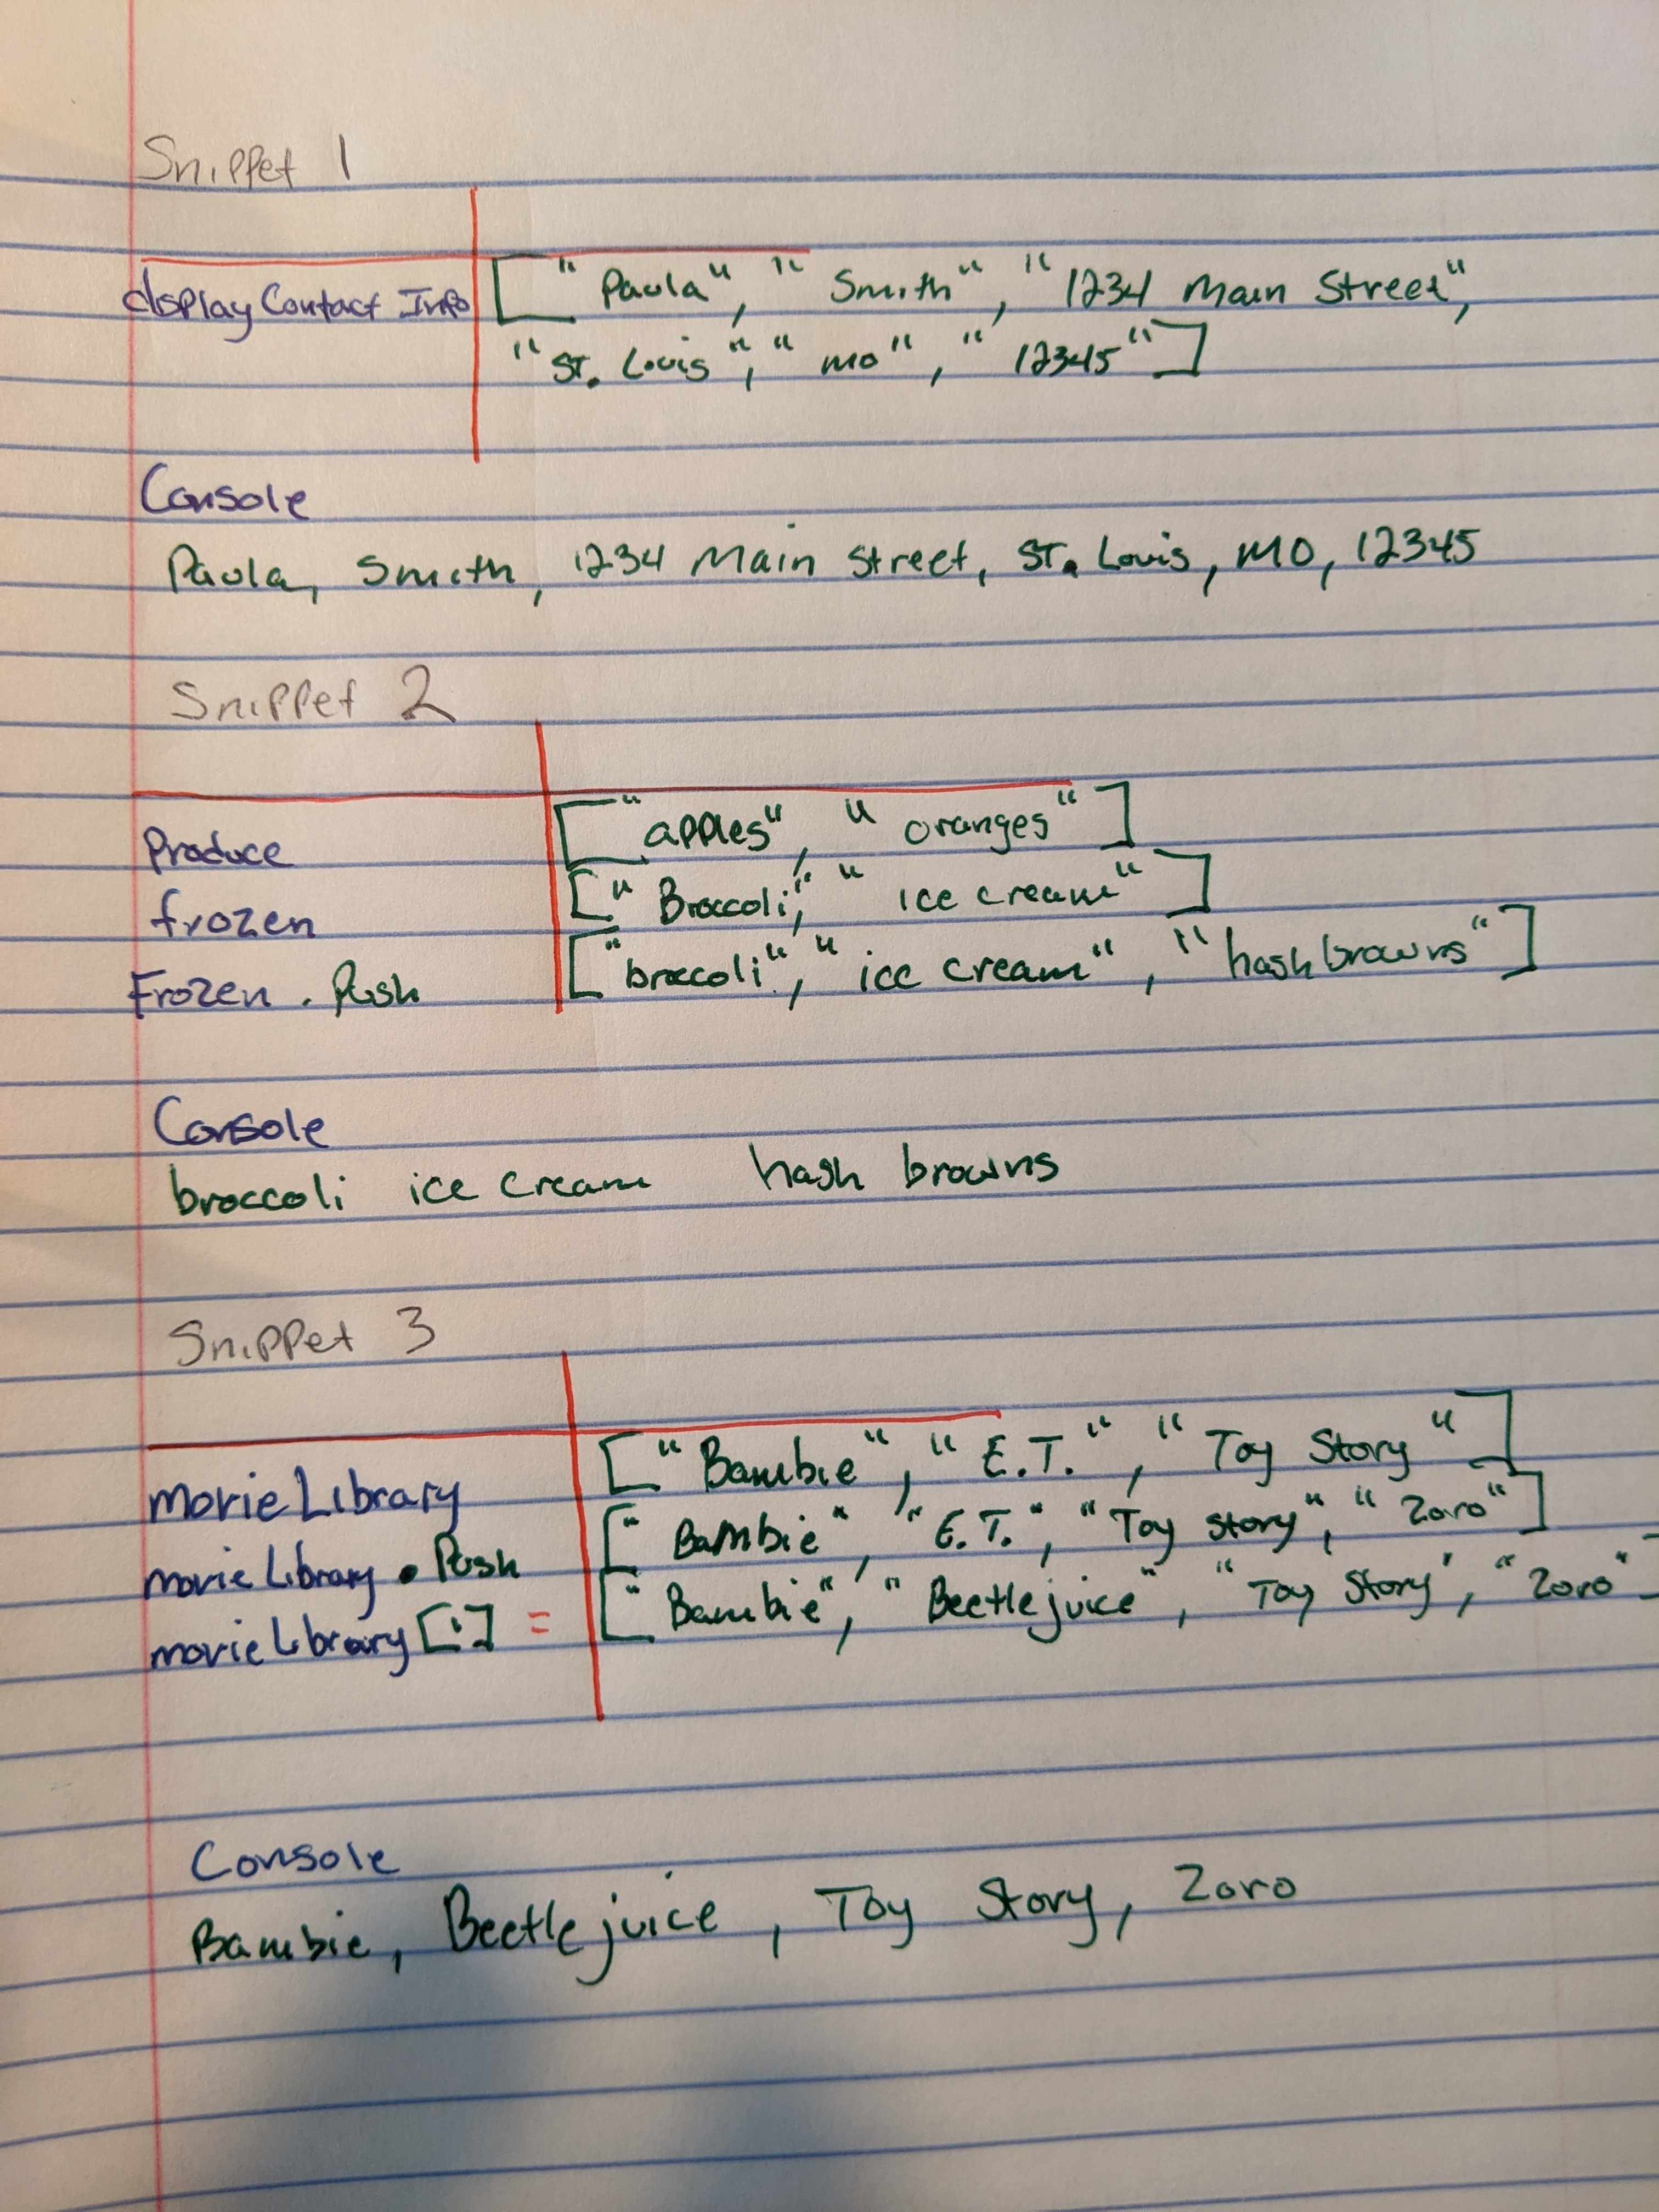 Snippet 1
display Contact Info ["Paula", "Smith", "1234 Main Street",
"St. Louis", "mo", "12345"]
Console
Paula, Smith, 1234 Main Street, ST. Louis, MO, 12345
Snippet 2
Produce ["apples", "oranges"]
frozen ["Broccoli", "ice cream"]
Frozen . Push ["broccoli", "ice cream", "hash browns"]
Console
broccoli ice cream hash browns
Snippet 3
movie Library ["Bambie", "E.T.", "Toy Story"]
movie Library . Push ["Bambie", "E.T.", "Toy Story", "Zoro"]
movie Library [i] = ["Bambie", "Beetlejuice", "Toy Story', "Zoro"
Console
Bambie, Beetlejuice, Toy Story, Zoro